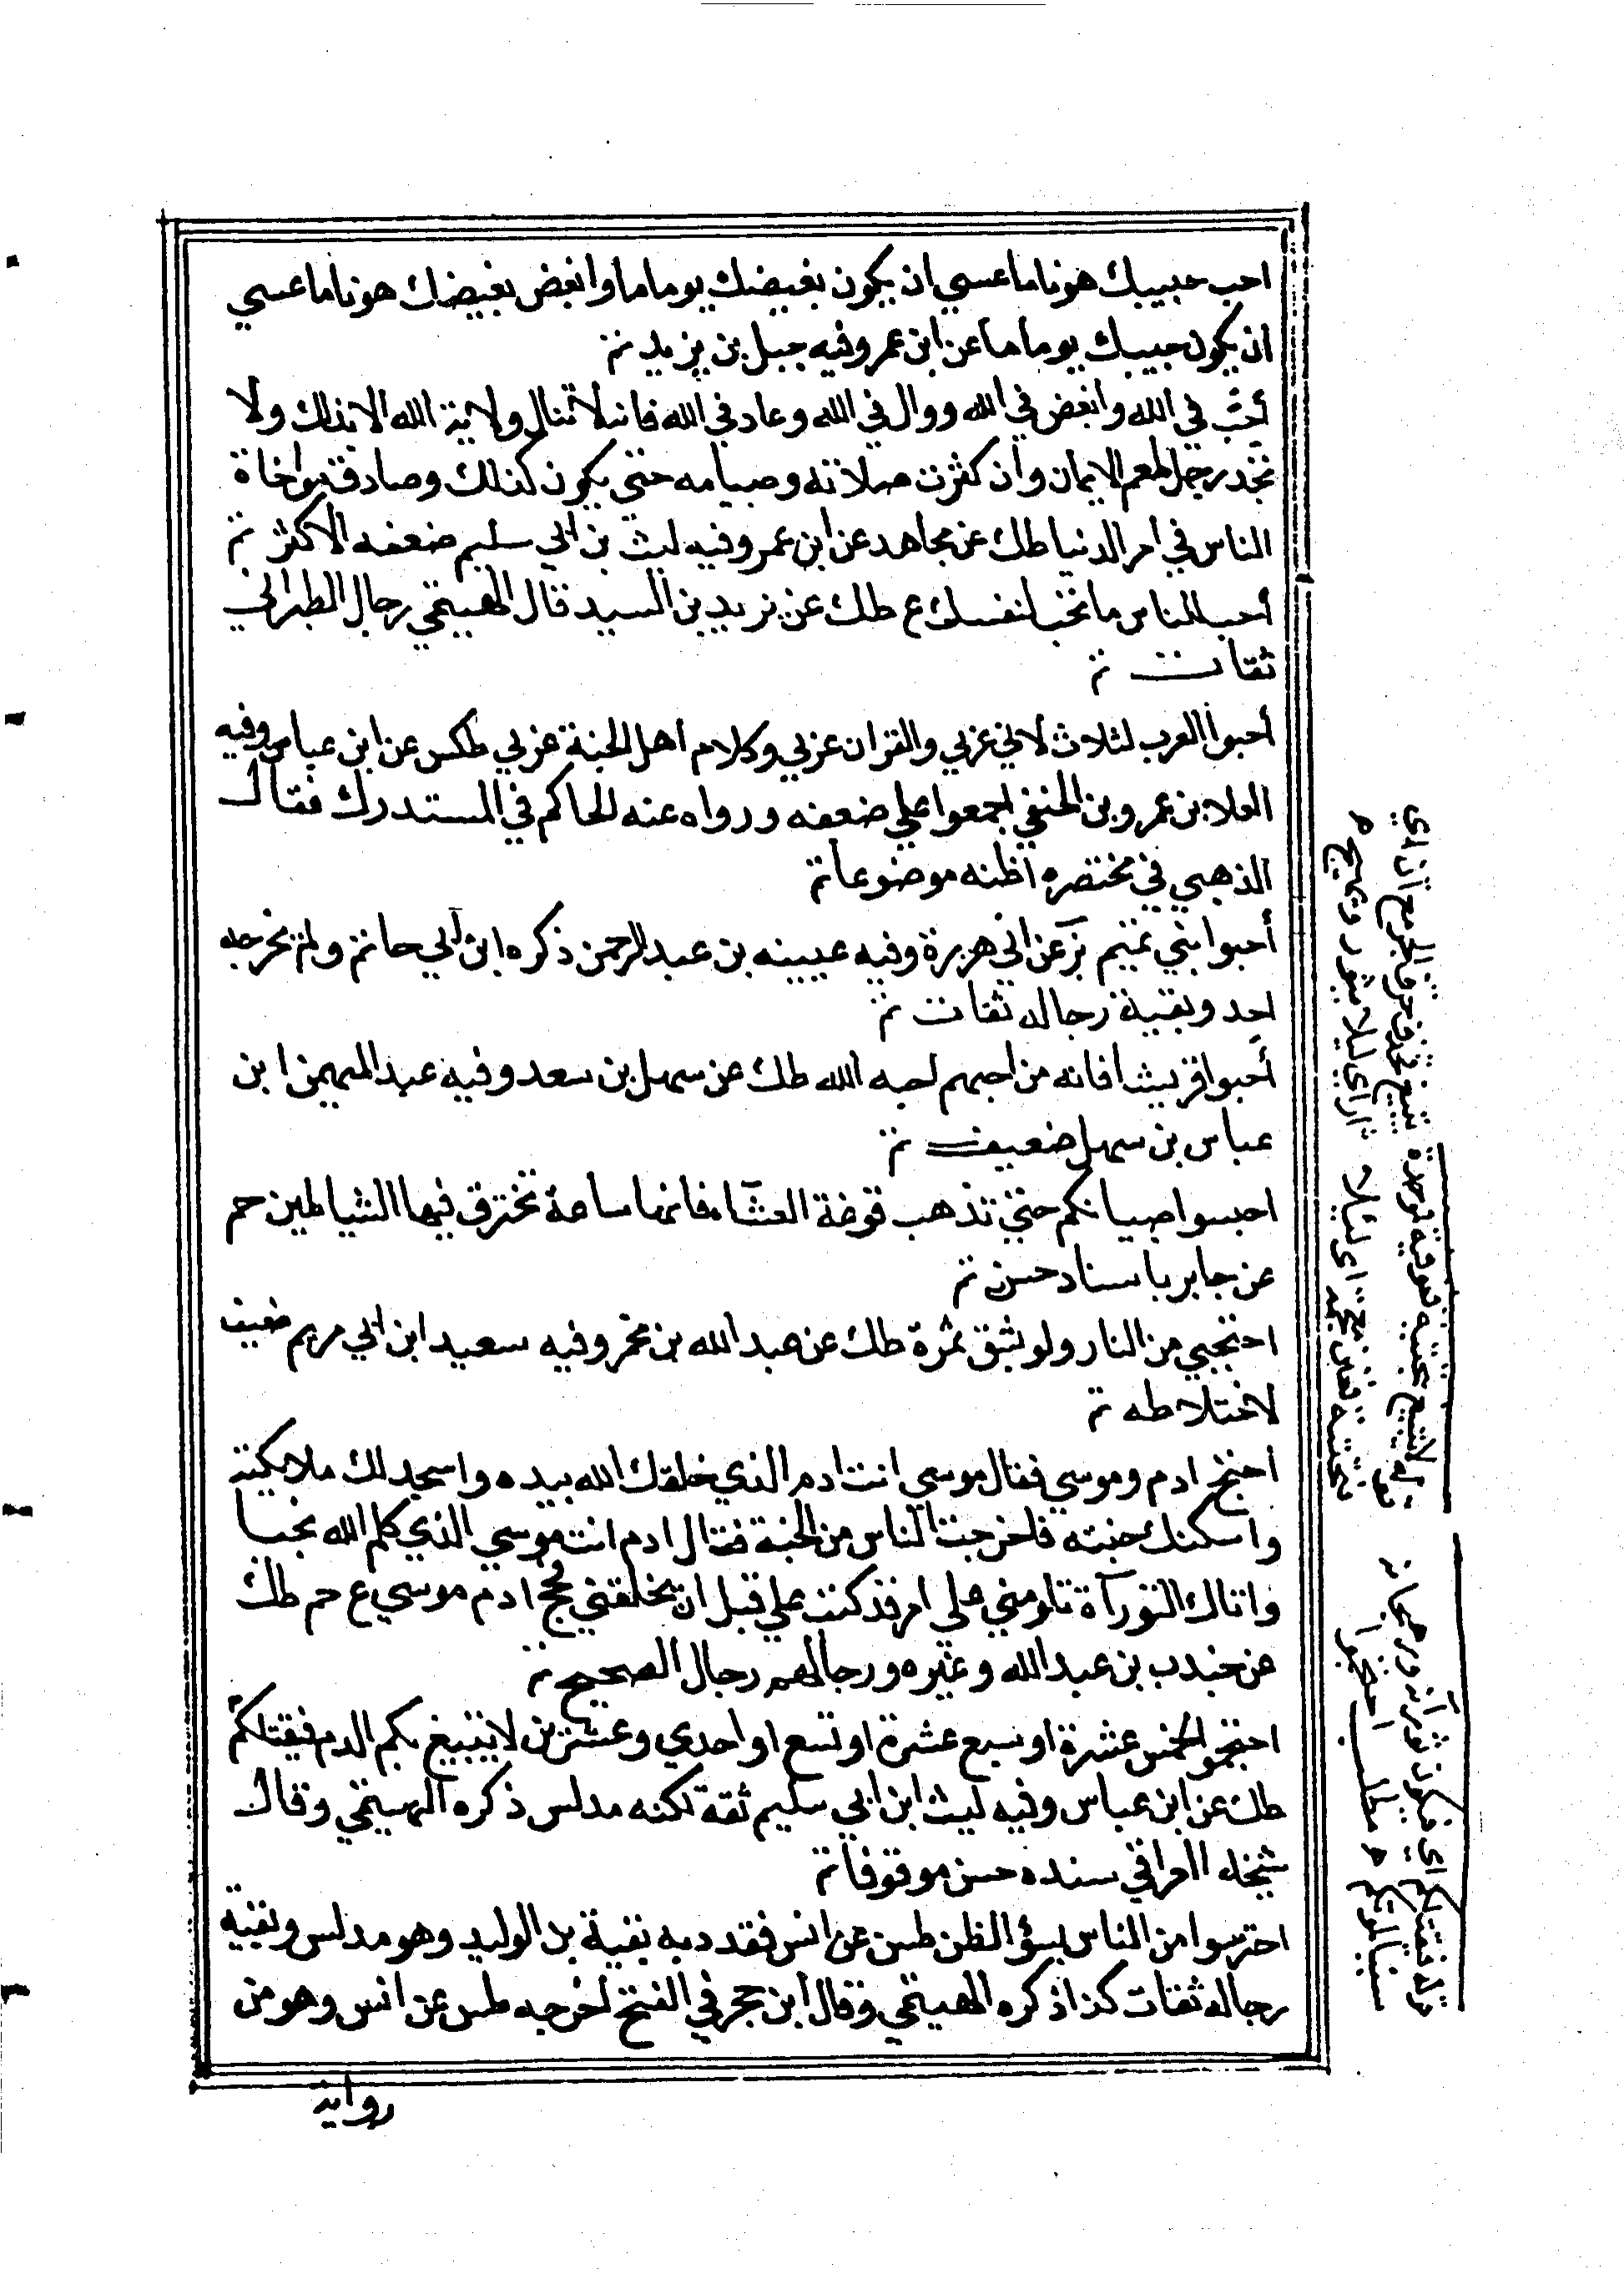 احب حبيبك هونا ما عسي ان يكون بغيضك يوما ما وابغض بغيضك هونا ما عسي
ان يكون حبيبك يوما ما عن ابن عمر وفيه جبل بن يزيد تم
أحب في الله وابغض في الله ووال في الله وعاد في الله فانه لا تنال ولاية الله الا بذلك ولا
تجد رجل طعم الايمان وان كثرت صلاته وصيامه حتي يكون كذلك وصادقة مواخاة
الناس في امر الدنيا طك عن مجاهد عن ابن عمر وفيه ليث بن ابي سليم ضعفه الاكثر تم
أحب للناس ما تحب لنفسك ع طك عن يزيد بن السيد قال الهيتمي رجال الطبراني
ثقات تم
أحبوا العرب لثلاث لاني عربي والقران عربي وكلام اهل الجنة عربي طكس عن ابن عباس وفيه
العلا بن عمرو بن الحنفي اجمعوا علي ضعفه ورواه عنه الحاكم في المستدرك فقال
الذهبي في مختصره اظنه موضوعا تم
أحبوا بني تميم بز عن ابي هريرة وفيه عيينه بن عبد الرحمن ذكره ابن أبي حاتم ولم يخرجه
احد وبقية رجاله ثقات تم
أحبوا قريشا فانه من احبهم احبه الله طك عن سهل بن سعد وفيه عبد المهيمن ابن
عباس بن سهل ضعيف تم
احبسوا صبيانكم حتي تذهب فوعة العشاء فانها ساعة تخترق فيها الشياطين حم
عن جابر باسناد حسن تم
احتجبي من النار ولو بشق تمرة طك عن عبد الله بن مخمر وفيه سعيد ابن ابي مريم ضعيف
لاختلاطه تم
احتج ادم وموسي فقال موسي انت ادم الذي خلقك الله بيده واسجد لك ملايكته
واسكنك جنته فاخرجت الناس من الجنة فقال ادم انت موسي الذي كلم الله نجيا
واتاك التورآة تلومني علي امر قد كتب علي قبل ان يخلقني فحج ادم موسي ع حم طك
عن جندب بن عبد الله وغيره ورجالهم رجال الصحيح تم
احتجموا لخمس عشرة او سبع عشرة او تسع او احدي وعشرين لا يتبيغ بكم الدم فيقتلكم
طك عن ابن عباس وفيه ليث ابن ابي سليم ثقة لكنه مدلس ذكره الهيتمي وقال
شيخه العراقي سنده حسن موقوفا تم
احترسوا من الناس بسؤ الظن طس عن انس فقد دبه بقية بن الوليد وهو مدلس وبقية
رجاله ثقات كذا ذكره الهيتمي وقال ابن حجر في الفتح اخرجه طس عن انس وهو من
رواية